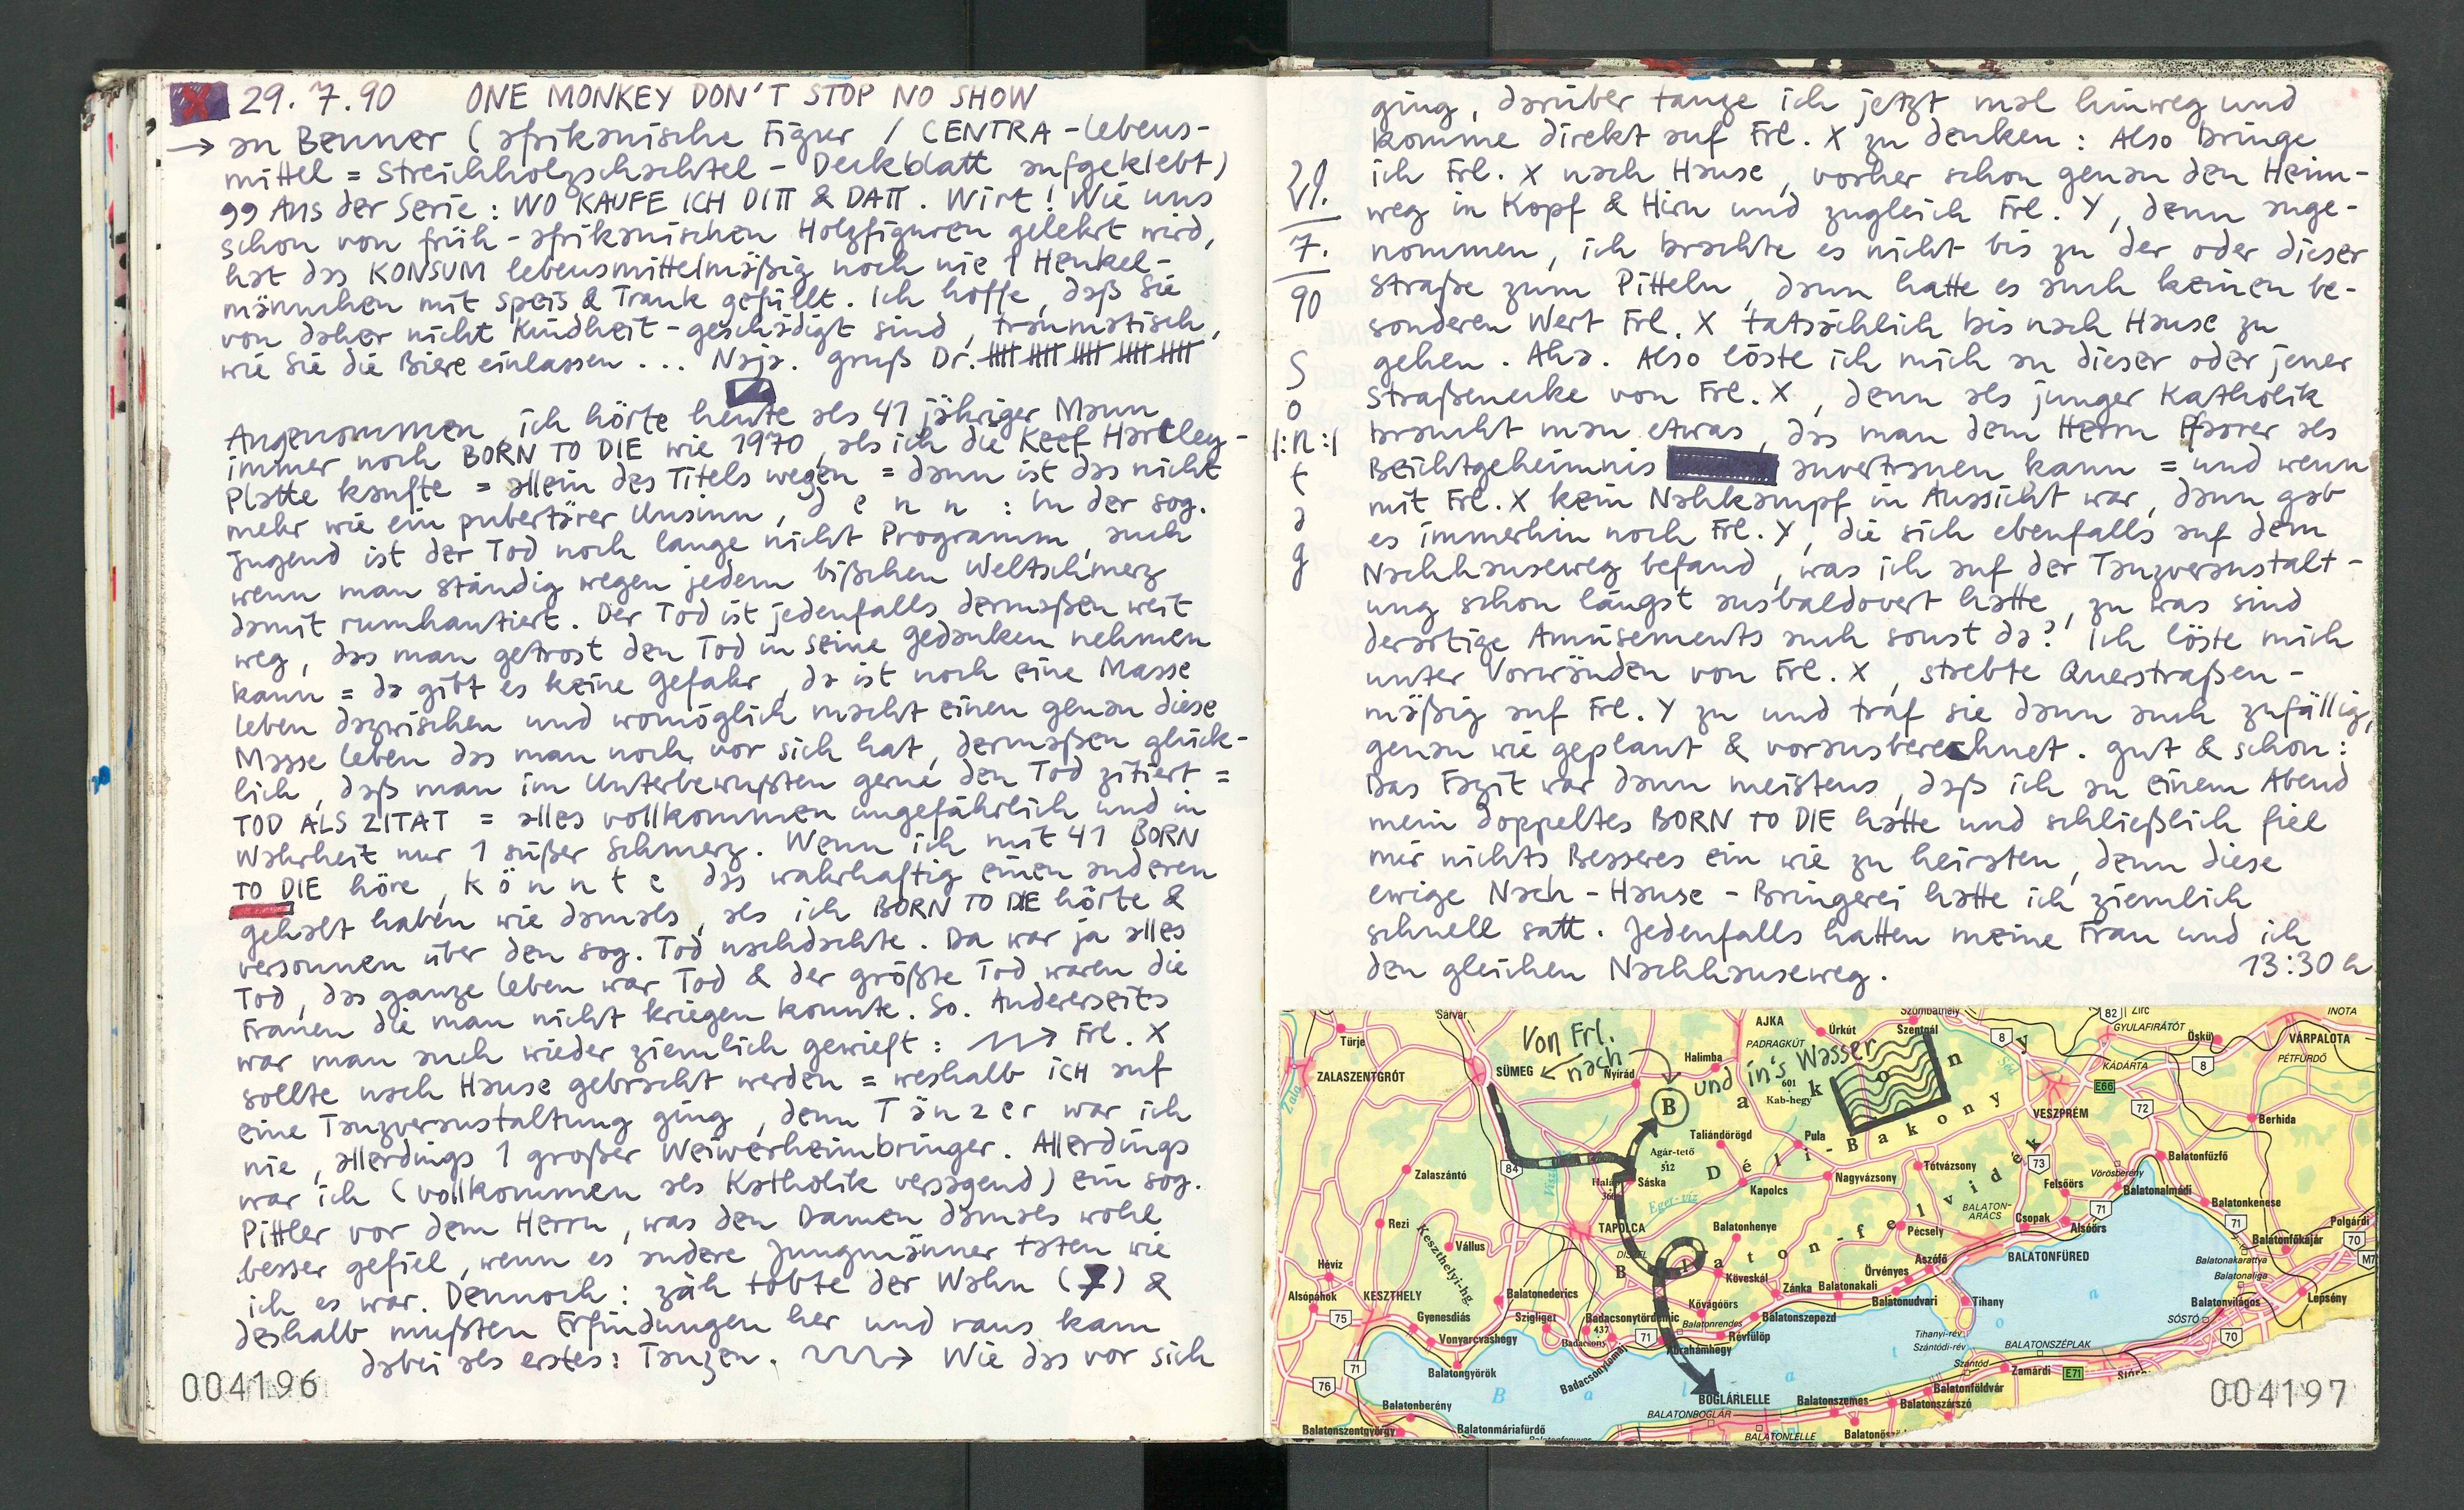 29.7.90 ONE MONKEY DON'T STOP NO SHOW
→ an Benner (afrikanische Figur / CENTRA-Lebens-
mittel = Streichholzschachtel - Deckblatt aufgeklebt)
99 Aus der Serie: WO KAUFE ICH DITT & DATT. Wirt! Wie uns
schon von früh-afrikanischen Holzfiguren gelehrt wird,
hat das KONSUM lebensmittelmäßig noch nie 1 Henkel-
männchen mit Speis & Trank gefüllt. Ich hoffe, daß Sie
von daher nicht Kindheit-geschädigt sind, traumatisch,
wie Sie die Biere einlassen... Naja. Gruß Dr.
Angenommen, ich hörte heute als 41 jähriger Mann
immer noch BORN TO DIE wie 1970, als ich die Keef Hartley-
Platte kaufte = allein des Titels wegen = dann ist das nicht
mehr wie ein pubertärer Unsinn, d e n n : In der sog.
Jugend ist der Tod noch lange nicht Programm, auch
wenn man ständig wegen jedem bißchen Weltschmerz
damit rumhantiert. Der Tod ist jedenfalls dermaßen weit
weg, das man getrost den Tod in seine Gedanken nehmen
kann = da gibt es keine Gefahr, da ist noch eine Masse
Leben dazwischen und womöglich macht einen genau diese
Masse Leben das man noch vor sich hat, dermaßen glück-
lich, daß man im Unterbewußten gerne den Tod zitiert =
TOD ALS ZITAT = alles vollkommen ungefährlich und in
Wahrheit nur 1 süßer Schmerz. Wenn ich mit 41 BORN
TO DIE höre, k ö n n t e das wahrhaftig einen anderen
Gehalt haben wie damals, als ich BORN TO DIE hörte &
versonnen über den sog. Tod nachdachte. Da war ja alles
Tod, das ganze Leben war Tod & der größte Tod waren die
Frauen die man nicht kriegen konnte. So. Andererseits
war man auch wieder ziemlich gewieft: → Frl. X
sollte nach Hause gebracht werden = weshalb ICH auf
eine Tanzveranstaltung ging, denn T ä n z e r war ich
nie, allerdings 1 großer Weiwerheimbringer. Allerdings
war ich (vollkommen als Katholik versagend) ein sog.
Pittler vor dem Herrn, was den Damen damals wohl
besser gefiel, wenn es andere Jungmänner taten wie
ich es war. Dennoch: zäh tobte der Wahn (7) &
deshalb mußten Erfindungen her und raus kam
dabei als erstes: Tanzen. → Wie das vor sich
004196
29.
7.
90
S
o
|:n:|
t
a
g
ging, darüber tanze ich jetzt mal hinweg und
komme direkt auf Frl. X zu denken: Also bringe
ich Frl. X nach Hause, vorher schon genau den Heim-
weg in Kopf & Hirn und zugleich Frl. Y, denn ange-
nommen, ich brachte es nicht bis zu der oder dieser
Straße zum Pitteln, dann hatte es auch keinen be-
sonderen Wert Frl. X tatsächlich bis nach Hause zu
gehen. Aha. Also löste ich mich an dieser oder jener
Straßenecke von Frl. X, denn als junger Katholik
braucht man etwas, das man dem Herrn Pfarrer als
Beichtgeheimnis anvertrauen kann = und wenn
mit Frl. X kein Nahkampf in Aussicht war, dann gab
es immerhin noch Frl. Y, die sich ebenfalls auf dem
Nachhauseweg befand, was ich auf der Tanzveranstalt-
ung schon längst ausbaldovert hatte, zu was sind
derartige Amüsements auch sonst da? Ich löste mich
unter Vorwänden von Frl. X, strebte Querstraßen-
mäßig auf Frl. Y zu und traf sie dann auch zufällig,
genau wie geplant & vorausberechnet. Gut & schön:
Das Fazit war dann meistens, daß ich an einem Abend
mein doppeltes BORN TO DIE hatte und schließlich fiel
mir nichts Besseres ein wie zu heiraten, denn diese
ewige Nach-Hause-Bringerei hatte ich ziemlich
schnell satt. Jedenfalls hatten meine Frau und ich
den gleichen Nachhauseweg. 13:30 h
Von Frl.
← nach B und in's Wasser
Sárvár
Türje
ZALASZENTGRÓT
SÜMEG
Nyírád
Halimba
AJKA
PADRAGKÚT
Úrkút
Szombathely
Szentgál
82
Zirc
GYULAFIRÁTÓT
Öskü
INOTA
VÁRPALOTA
PÉTFÜRDŐ
8
KÁDÁRTA
8
E66
72
VESZPRÉM
Séd
Berhida
601
Kab-hegy
B a k o n y
Déli-Bakony
Taliándörögd
Pula
Agár-tető
512
84
Zalaszántó
Sáska
Kapolcs
Nagyvázsony
Tótvázsony
73
Vörösberény
Balatonfűzfő
Felsőörs
Balatonalmádi
Balatonkenese
Eger-víz
Rezi
Vállus
TAPOLCA
DISZEL
Balatonhenye
Pécsely
BALATON-
ARÁCS
Csopak
71
Alsóörs
71
Polgárdi
Balatonfőkajár
70
M7
Keszthelyi-hg
Balaton-felvidék
Hévíz
Köveskál
Zánka
Balatonakali
Örvényes
Aszófő
BALATONFÜRED
Balatonakarattya
Balatonaliga
Alsópáhok
KESZTHELY
Balatonederics
Balatonudvari
Tihany
Balatonvilágos
Lepsény
75
Gyenesdiás
Vonyarcvashegy
Szigliget
Badacsonytördemic
437
Badacsony
Kővágóörs
Balatonrendes
71
Révfülöp
Balatonszepezd
Ábrahámhegy
Tihanyi-rév
Szántódi-rév
SÓSTÓ
70
BALATONSZÉPLAK
71
Balatongyörök
Badacsonytomaj
Szántód
Zamárdi
E71
76
B a l a t o n
BOGLÁRLELLE
Balatonszemes
Balatonföldvár
Balatonszárszó
Balatonberény
BALATONBOGLÁR
Balatonszentgyörgy
Balatonmáriafürdő
BALATONLELLE
004197